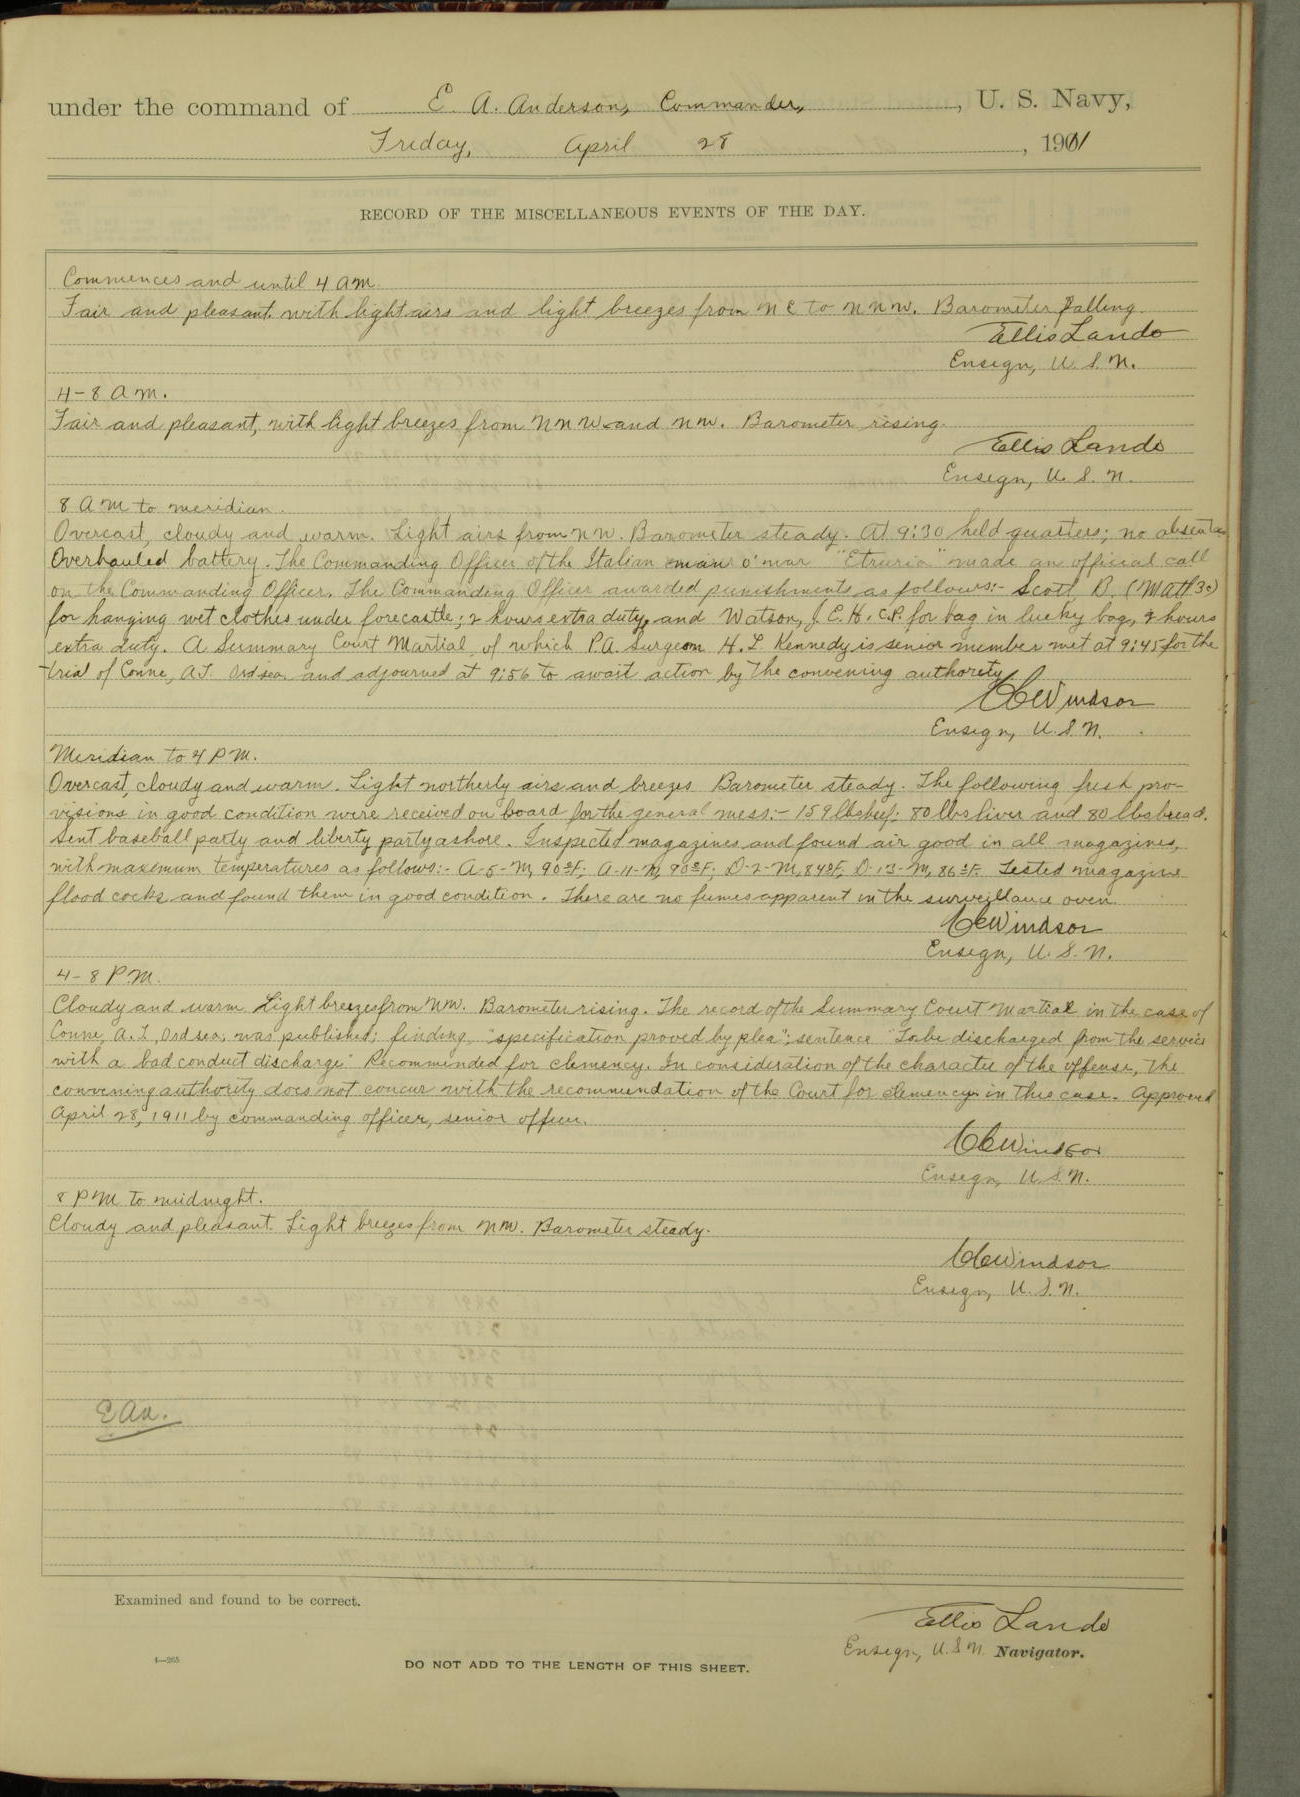 under the command of E. A. Anderson, Commander, , U. S. Navy,
Friday, April 28 , 1911
RECORD OF THE MISCELLANEOUS EVENTS OF THE DAY.
Commences and until 4 am.
Fair and pleasant with light airs and light breezes from NE to NNW. Barometer falling.
Ellis Lando
Ensign, U. S. N.
4-8 am.
Fair and pleasant, with light breezes from NNW and NW. Barometer rising.
Ellis Lando
Ensign, U. S. N.
8 AM to meridian.
Overcast, cloudy and warm. Light airs from NW. Barometer steady. At 9:30 held quarters; no absentees
Overhauled battery. The Commanding Officer of the Italian man o' war "Etruria" made an official call
on the Commanding Officer. The Commanding Officer awarded punishments as follows:- Scott, B. (Matt 3c)
for hanging wet clothes under forecastle; 2 hours extra duty, and Watson, J. E. H. C.P. for bag in lucky bag, 2 hours
extra duty. A Summary Court Martial of which P.A. Surgeon H. L. Kennedy is senior member met at 9:45 for the
trial of Conne, A.T. Ord sea. and adjourned at 9:56 to await action by the convening authority.
CCWindsor
Ensign, U.S.N.
Meridian to 4 PM.
Overcast, cloudy and warm. Light northerly airs and breezes. Barometer steady. The following fresh pro-
visions in good condition were received on board for the general mess:- 159 lbs beef; 80 lbs liver and 80 lbs bread.
Sent baseball party and liberty party ashore. Inspected magazines, and found air good in all magazines,
with maximum temperatures as follows:- A-5-M, 90°F; A-11-M, 90°F; D-2-M, 84°F, D-13-M, 86°F. Tested magazine
flood cocks, and found them in good condition. There are no fumes apparent in the surveillance oven.
CCWindsor
Ensign, U. S. N.
4-8 P.M.
Cloudy and warm. Light breezes from NW. Barometer rising. The record of the Summary Court Martial in the case of
Conne, A. T. Ord sea, was published; finding, "specification proved by plea"; sentence "To be discharged from the service
with a bad conduct discharge." Recommended for clemency. In consideration of the character of the offense, the
convening authority does not concur with the recommendation of the Court for clemency in this case. Approved
April 28, 1911 by commanding officer, senior officer.
CCWindsor
Ensign, U.S.N.
8 PM to midnight.
Cloudy and pleasant. Light breezes from NW. Barometer steady.
CCWindsor
Ensign, U. S. N.
E A a.
Examined and found to be correct.
Ellis Lando
Ensign, U. S. N. Navigator.
4—265
DO NOT ADD TO THE LENGTH OF THIS SHEET.